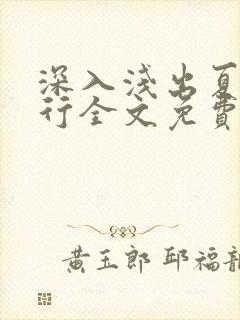 深入浅出夏
行全文免費
黃玉郎 邱福龍